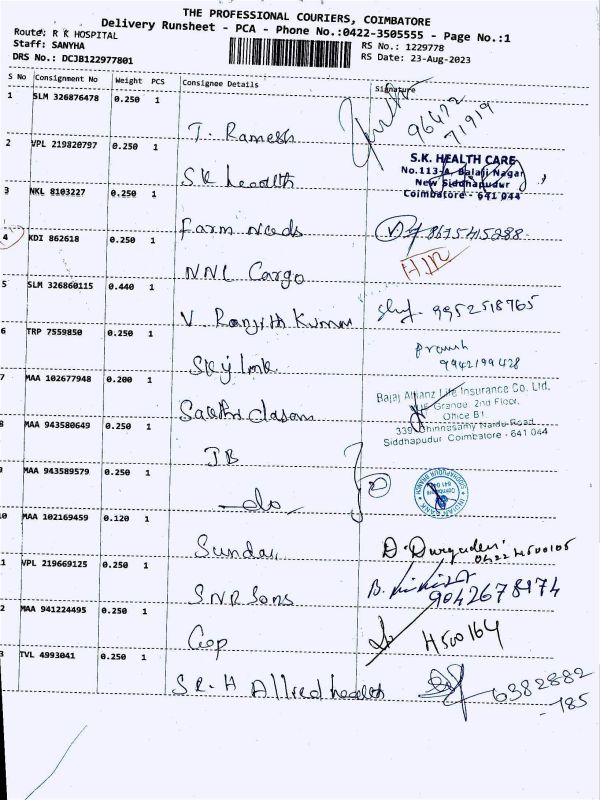 THE PROFESSIONAL COURIERS, COIMBATORE
Delivery Runsheet - PCA - Phone No.:0422-3505555 - Page No.:1
Route: R K HOSPITAL
Staff: SANYHA RS No.: 1229778
DRS No.: DCJB122977801 RS Date: 23-Aug-2023
S No Consignment No Weight PCS Consignee Details Signature
1 SLM 326876478 0.250 1
T. Ramesh 96472 71919
2 VPL 219820797 0.250 1
SK health
S.K. HEALTH CARE
No.113-A, Balaji Nagar
New Siddhapudur
Coimbatore - 641 044
3 NKL 8103227 0.250 1
Farm Needs 8675415288
4 KDI 862618 0.250 1
NNL Cargo
5 SLM 326860115 0.440 1
V Ranjith Kumar 9952518765
6 TRP 7559850 0.250 1
9942199428
7 MAA 102677948 0.200 1
Bajaj Allianz Life Insurance Co. Ltd.
Grande, 2nd Floor,
Office B1,
339, Chinnasamy Naidu Road
Siddhapudur Coimbatore - 641 044
8 MAA 943580649 0.250 1
IB
9 MAA 943589579 0.250 1
-do-
10 MAA 102169459 0.120 1
Sundar
11 VPL 219669125 0.250 1
SNR Sons 9042678174
12 MAA 941224495 0.250 1
4500164
13 TVL 4993041 0.250 1
S R. H Allied health 6382882
-185